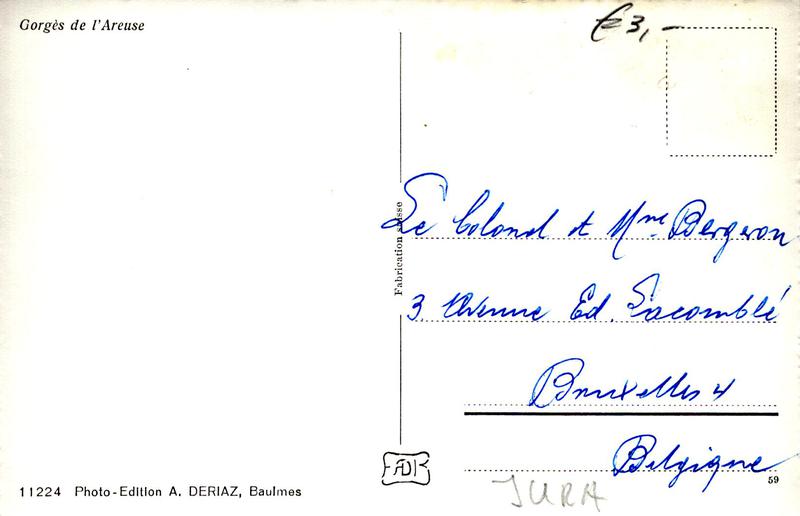 Gorgès de l'Areuse
€3,-
Fabrication suisse
Le Colonel et Mme Bergeron
3. Avenue Ed. Lacomblé
Bruxelles 4
Belgique
59
11224 Photo-Edition A. DERIAZ, Baulmes
JURA